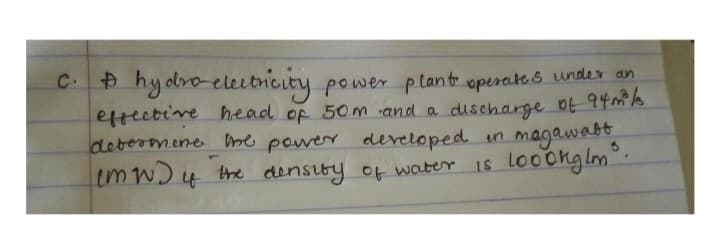 C. A hydro-electricity power plant operates under an
effective head of 50m and a discharge of 94m³/s
determine the power developed in magawatt
(mW) if the density of water is 1000kg/m³.